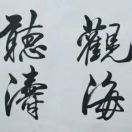 觀海
聽濤